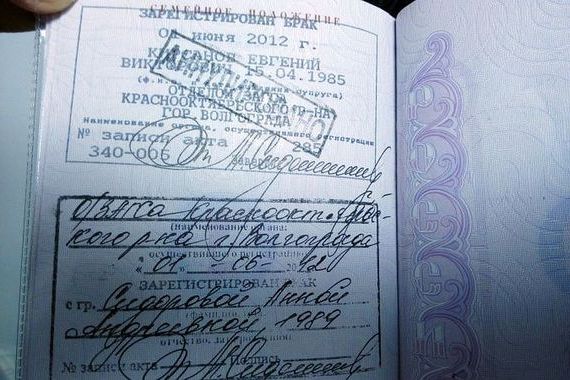 СЕМЕЙНОЕ ПОЛОЖЕНИЕ
ЗАРЕГИСТРИРОВАН БРАК
01 июня 2012 г.
ЕВГЕНИЙ
ВИКТОРОВИЧ 15.04.1985
супруга)
ОТДЕЛОМ ЗАГСА
КРАСНООКТЯБРЬСКОГО Р-НА
ГОР. ВОЛГОГРАДА
наименование органа, осуществившего регистрацию
№ записи акта 285
340-006
ОЗАГСа Краснооктябрь-
(наименование органа:
ского р-на г. Волгограда
осуществившего регистрацию)
"01" - 06- 2012
ЗАРЕГИСТРИРОВАН БРАК
с гр. Сидоровой Анной
Андреевной, 1989
отчество, дата рождения)
№ записи акта Подпись